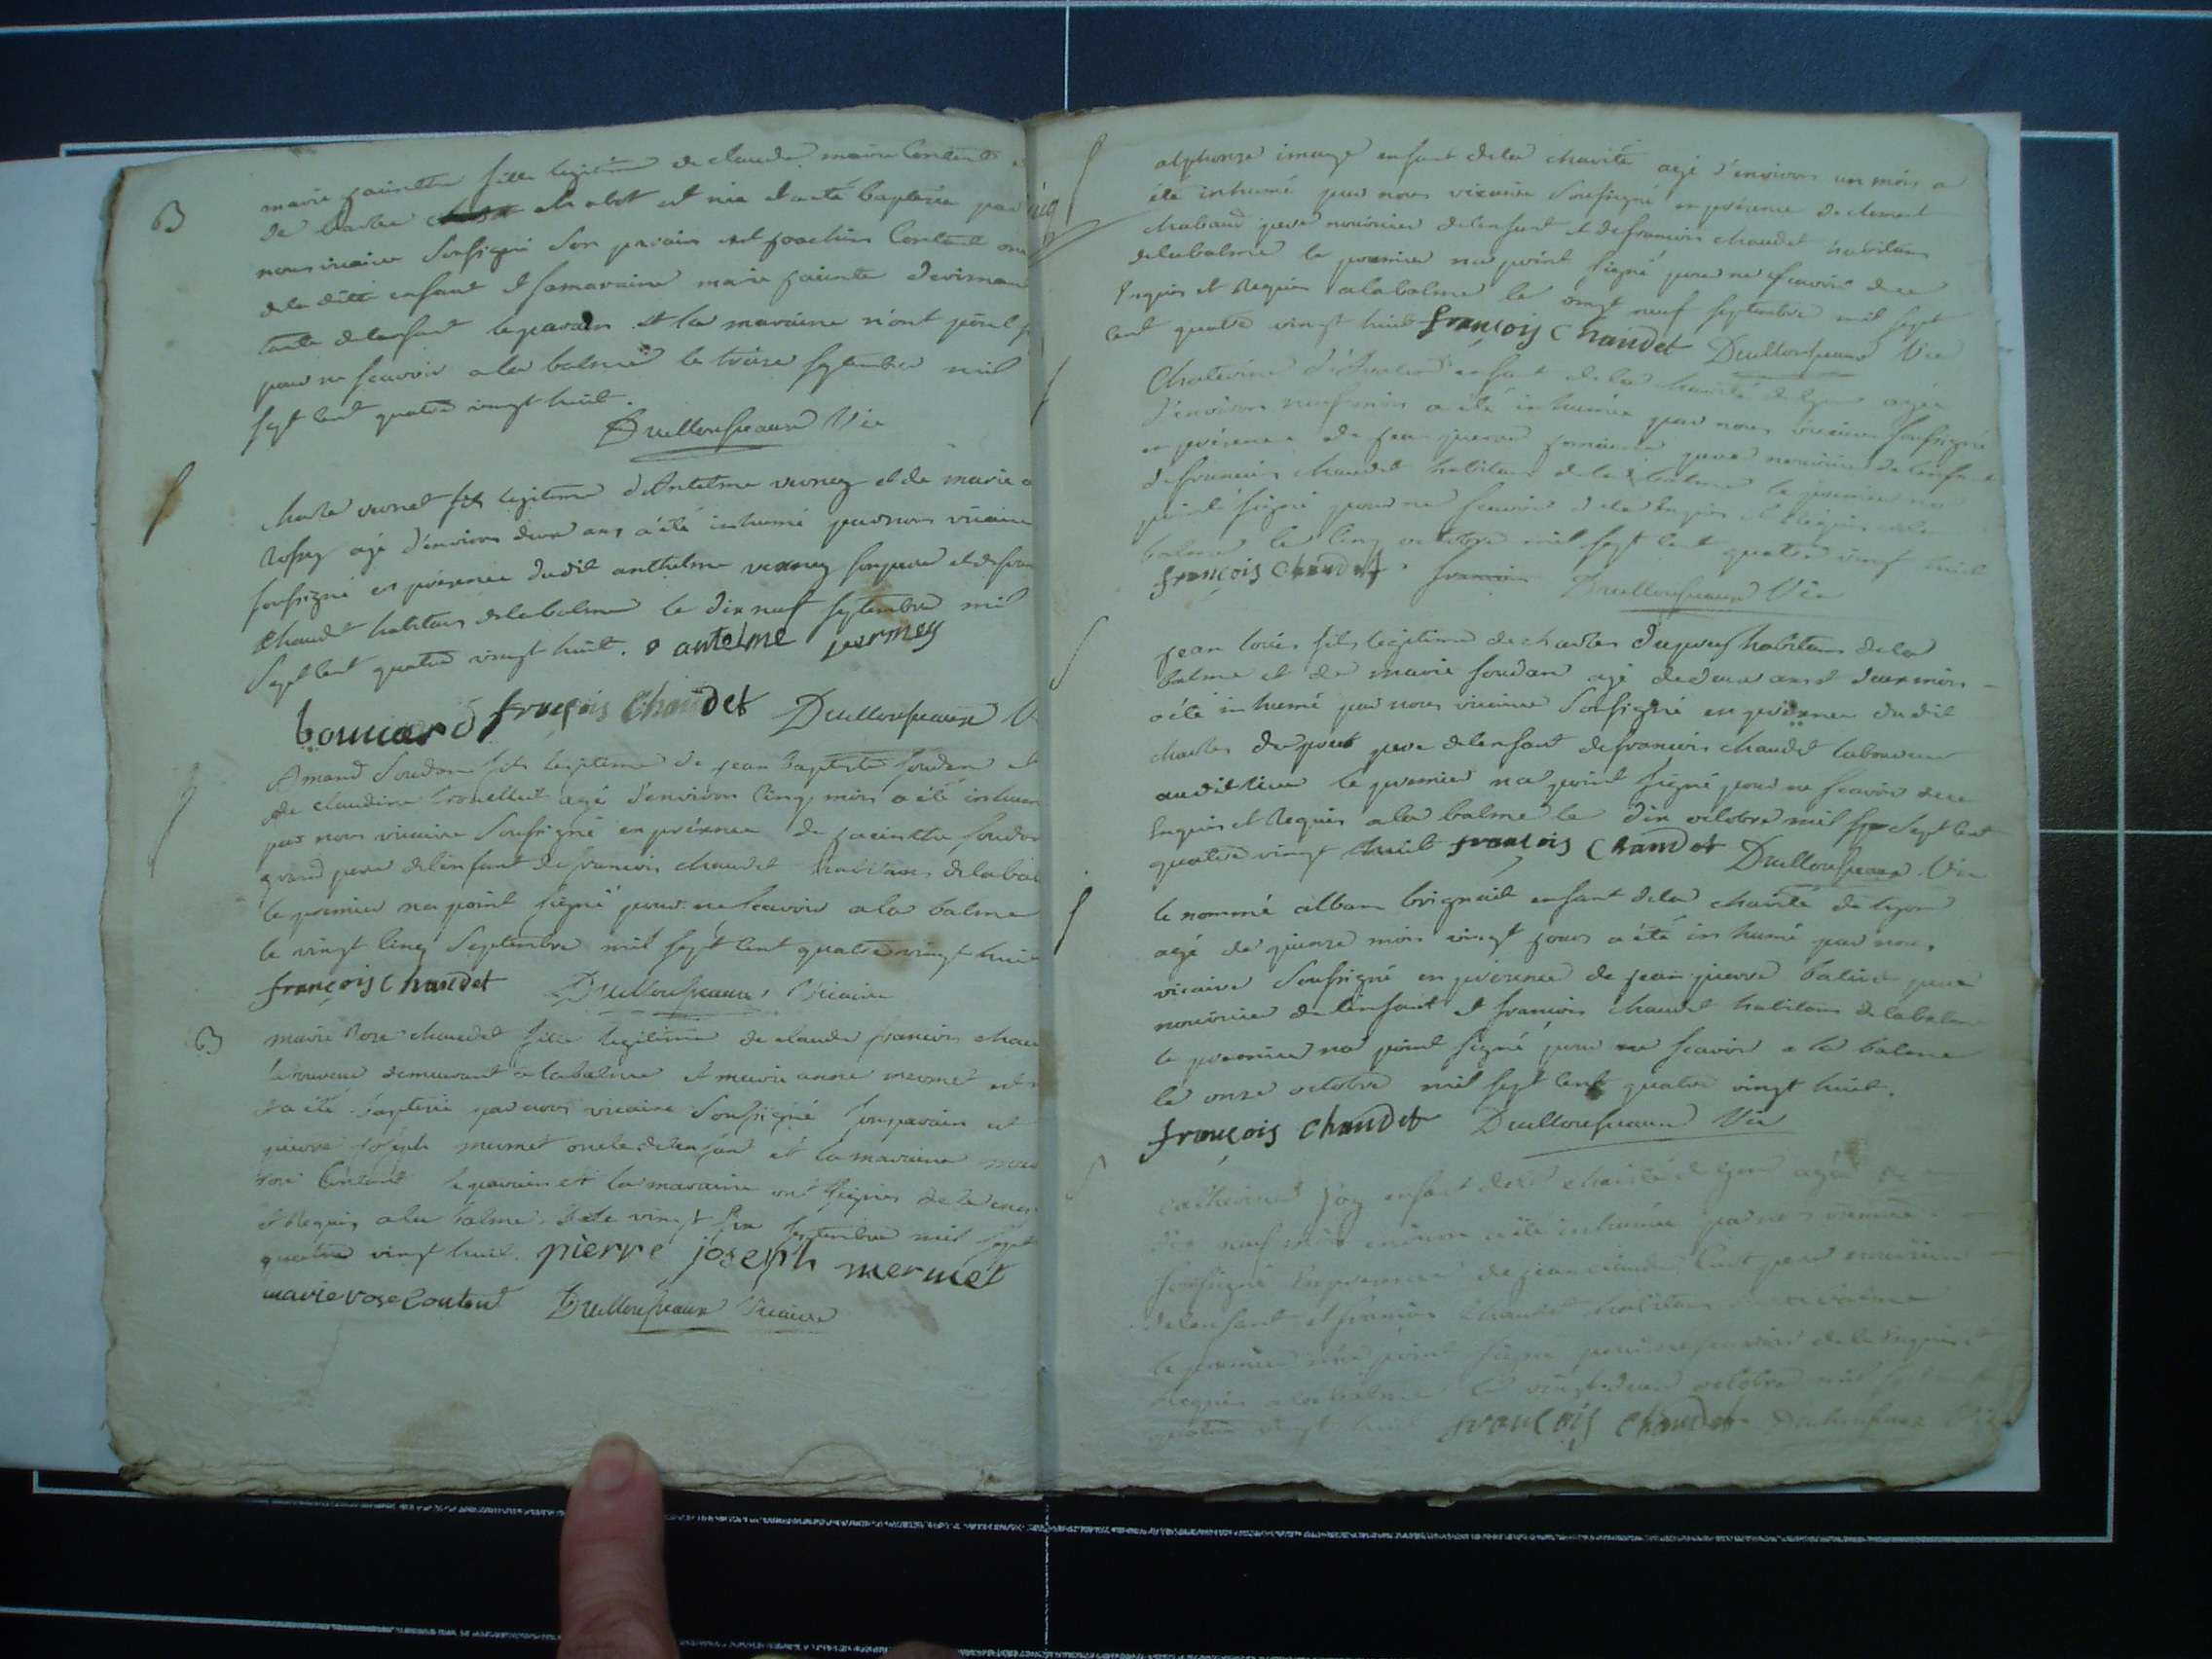 B
marie jacinthe fille legitime de claude marie Contant
de barbe chabot est née et a été baptisée par
nous vicaire soussigné son parain est joachim Contant
de la dite enfant et sa maraine marie jacinte
tante de lenfant le parain et la maraine n'ont point
pour ne scavoir a la balme le treize septembre mil
sept cent quatre vingt huit.
Druillonspeaux Vic
charle vernet fils legitime d'Antelme verney et de marie
rossey agé d'environ deux ans a été inhumé par nous vicaire
soussigné en présence dudit anthelme verney son pere et de fran
chaudet habitans de la balme le dix neuf septembre mil
sept cent quatre vingt huit. antelme
françois Chaudet Druillonspeaux
Amand Soudan fils legitime de jean baptiste soudan et
de claudine agé d'environ cinq mois a été inhum
par nous vicaire soussigné en présence de jacinthe soudan
grand pere de lenfant de francois chaudet habitans de la bal
le premier na point signé pour ne scavoir a la balme
le vingt cinq septembre mil sept cent quatre vingt huit
françois Chaudet Druillonspeaux Vicaire
B
marie rose chaudet fille legitime de claude francois chau
laboureur demeurant a la balme et marie anne mermet est
et a été baptisée par nous vicaire soussigné son parain est
pierre joseph mermet oncle de lenfant et la maraine marie
rose Contant le parain et la maraine ont signés de ce enquis
et Requis a la balme le vingt six septembre mil sept
quatre vingt huit. pierre joseph mermet
marie rose Contant Druillonspeaux Vicaire
alphonse image enfant de la charité agé d'environ un mois a
été inhumé par nous vicaire soussigné en présence de clement
chabaud pere nouricier de lenfant et de francois chaudet habitans
de la balme le premier na point signé pour ne scavoir de ce
enquis et Requis a la balme le vingt neuf septembre mil sept
cent quatre vingt huit françois Chaudet Druillonspeaux Vic
Chaterine enfant de la charité de lyon agée
d'environ neuf mois a été inhumée par nous vicaire soussigné
en présence de jean pierre pere nouricier de lenfant
de francois chaudet habitans de la balme le premier na
point signé pour ne scavoir de ce enquis et Requis a la
balme le cinq octobre mil sept cent quatre vingt huit
françois Chaudet. Druillonspeaux Vic
jean loüis fils legitime de charles dupuis habitans de la
balme et de marie soudan agé de deux ans et deux mois
a été inhumé par nous vicaire soussigné en présence dudit
charles pere de lenfant de francois chaudet laboureur
audit lieu le premier na point signé pour ne scavoir de ce
Enquis et Requis a la balme le dix octobre mil sept cent
quatre vingt huit françois Chaudet Druillonspeaux Vic
le nommé alban enfant de la charité de lyon
agé de quinze mois vingt jours a été inhumé par nous
vicaire soussigné en présence de jean pierre pere
nouricier de lenfant et francois chaudet habitans de la balme
le premier na point signé pour ne scavoir a la balme
le onze octobre mil sept cent quatre vingt huit.
françois Chaudet Druillonspeaux Vic
enfant de la charité de lyon agée de
dix neuf mois environ a été inhumée par nous vicaire
soussigné en présence de jean claude pere nouricier
de lenfant et francois chaudet habitans de la balme
le premier na point signé pour ne scavoir de ce enquis et
Requis a la balme le vingt deux octobre mil sept cent
quatre vingt huit françois Chaudet Vic